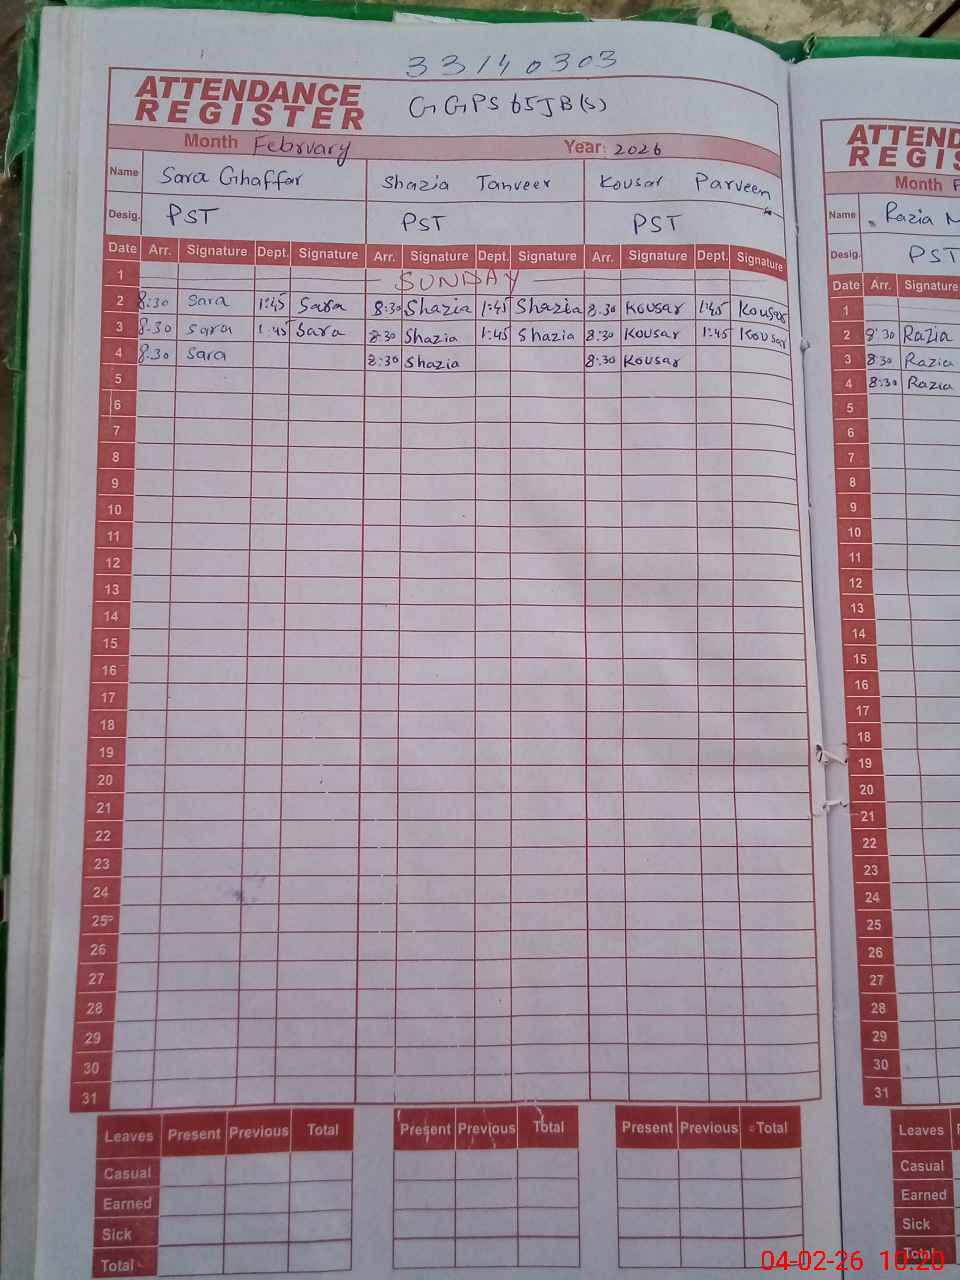 33140303
ATTENDANCE
REGISTER
GGPS 65JB(S)
Month February Year: 2026
Name Sara Ghaffar Shazia Tanveer Kousar Parveen
Desig. PST PST PST
Date Arr. Signature Dept. Signature Arr. Signature Dept. Signature Arr. Signature Dept. Signature
1 SUNDAY
2 8:30 Sara 1:45 Sara 8:30 Shazia 1:45 Shazia 8.30 Kousar 1:45 Kousar
3 8.30 Sara 1:45 Sara 8:30 Shazia 1:45 Shazia 8:30 Kousar 1:45 Kousar
4 8.30 Sara 8:30 Shazia 8:30 Kousar
5
6
7
8
9
10
11
12
13
14
15
16
17
18
19
20
21
22
23
24
25
26
27
28
29
30
31
Leaves Present Previous Total Present Previous Total Present Previous Total
Casual
Earned
Sick
Total
ATTEND
REGIS
Month F
Name Razia M
Desig. PST
Date Arr. Signature
1
2 8:30 Razia
3 8:30 Razia
4 8:30 Razia
5
6
7
8
9
10
11
12
13
14
15
16
17
18
19
20
21
22
23
24
25
26
27
28
29
30
31
Leaves
Casual
Earned
Sick
Total
04-02-26 10:20